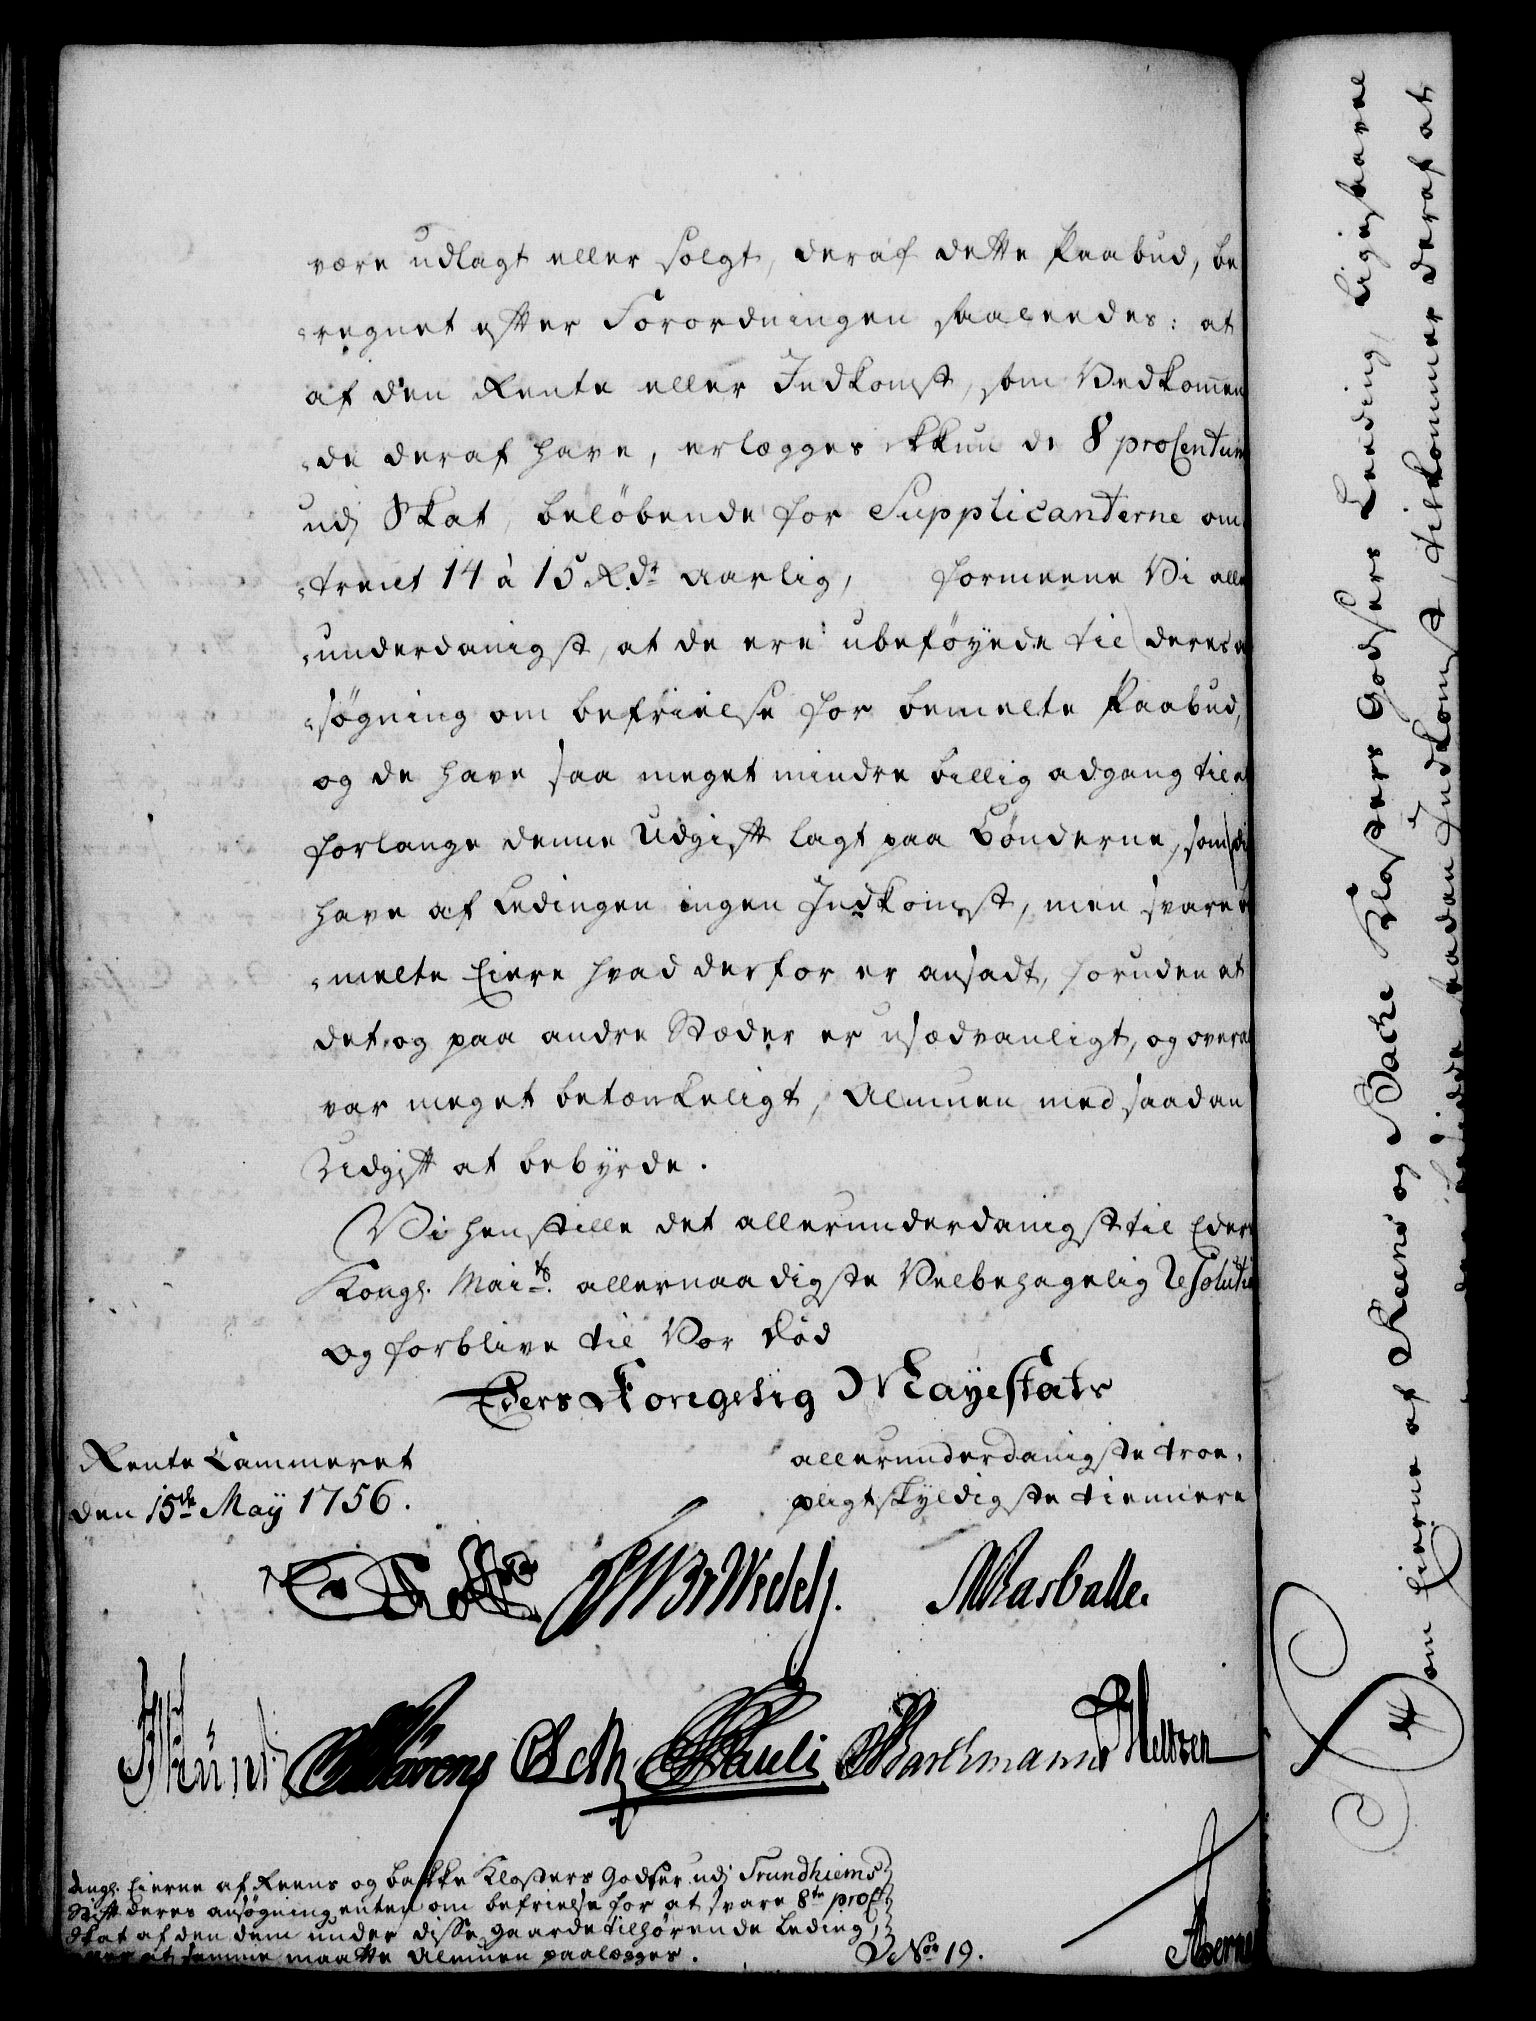 være udlagt eller solgt, deraf dette Paabud, be
regnet efter Forordningen saaleedes: at
af den Rente eller Indkomst, som Vedkommen
de deraf have, erlægges ikkun de 8 proCentum
udj Skat, beløbende for Supplicanterne om
trent 14 à 15 Rdr aarlig, formeene Vi aller
underdanigst, at de ere ubeføyede til deres an
søgning om befrielse for bemelte Paabud,
og de have saa meget mindre billig adgang til at
forlange denne Udgift lagt paa Bønderne, som
have af Ledingen ingen Indkomst, men svare be
melte Eiere hvad derfor er ansadt, foruden at
det og paa andre Stæder er usædvanligt, og overalt
var meget betænkeligt, Almuen med saadan
Udgift at bebyrde.
Vi henstille det allerunderdanigst til Eders
Kongl. Maits. allernaadigste Velbehagelig Resolution
og forblive til Vor Død
Eders Kongelig Mayestæts
allerunderdanigste troe,
pligtskyldigste tiennere
Rente Cammeret
den 15de May 1756.
Rasballe.
Pauli
Barchmann
Meltzen
angl. Eierne af Reens og bakke Klosters Godser udj Trundhiems
Stift deres ansøgning enten om befrielse for at svare 8te proC
Skat af den dem under disse gaarde tilhørende Leding,
at samme maatte Almuen paalægges.
No 19.
om Eierne af Reens og Bache Klosters Godsers Leeding, ligesaavel
Indkomst, tilkommer deraf at